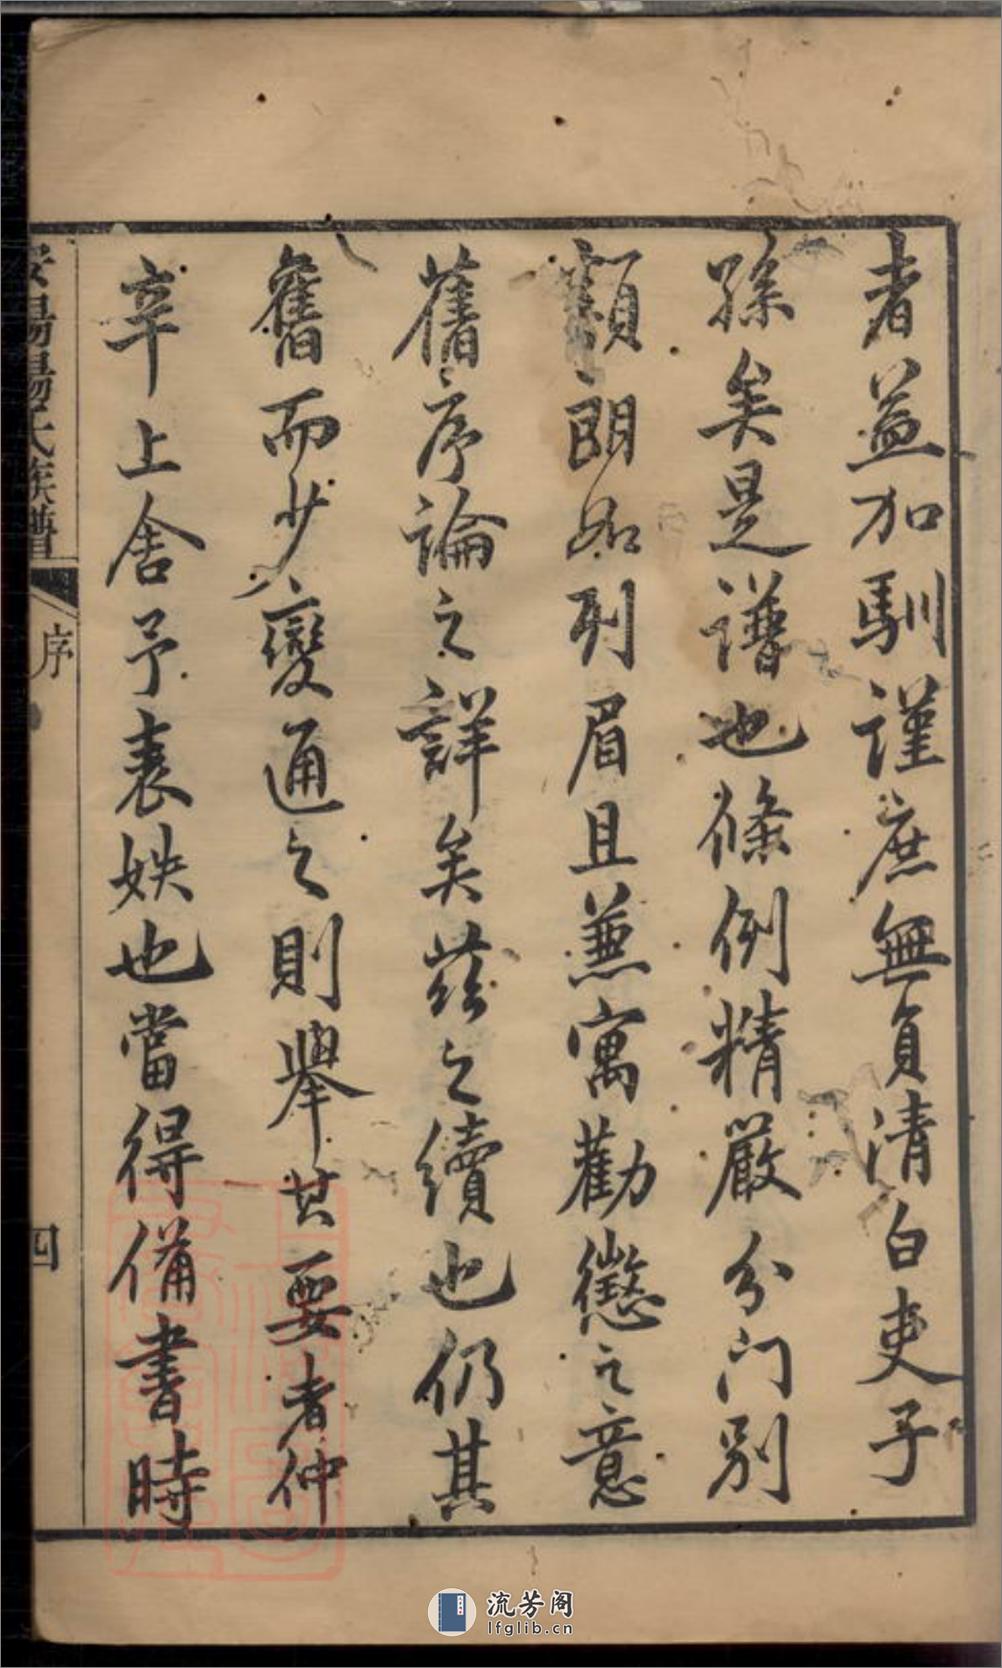 者益加馴謹庶無負清白吏子
孫矣是譜也條例精嚴分门别
類朗如列眉且蒹寓勸懲之意
舊序論之詳矣茲之續也仍其
舊而少變通之則舉其要者仲
辛上舍予表姪也當得備書時
楊氏族譜
序
四
流芳阁
lfglib.cn